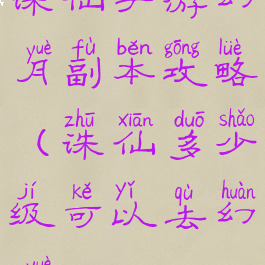 诛仙手游幻
yuè fù běn gōng lüè
月副本攻略
zhū xiān duō shǎo
(诛仙多少
jí kě yǐ qù huàn
级可以去幻
yuè